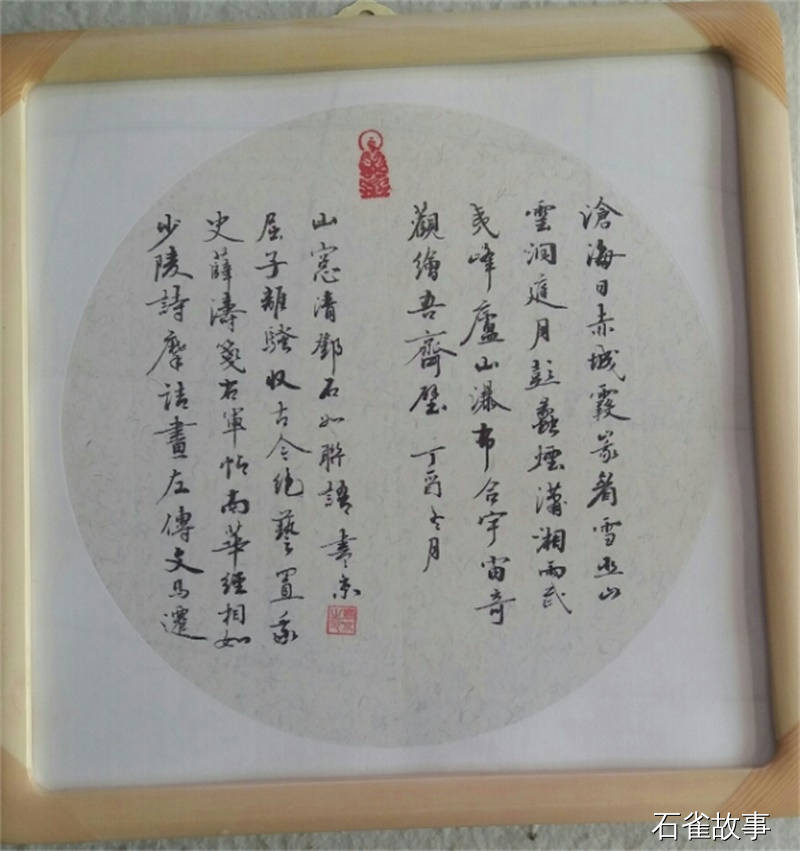 滄海日赤城霞峩眉雪巫山
雲洞庭月彭蠡煙瀟湘雨武
夷峰廬山瀑布合宇宙奇
觀繪吾齋壁 丁酉冬月
少陵詩摩詰畫左傳文馬遷
史薛濤箋右軍帖南華經相如
屈子離騷收古今絕藝置我
山窓清鄧石如聯語 書京
石雀故事